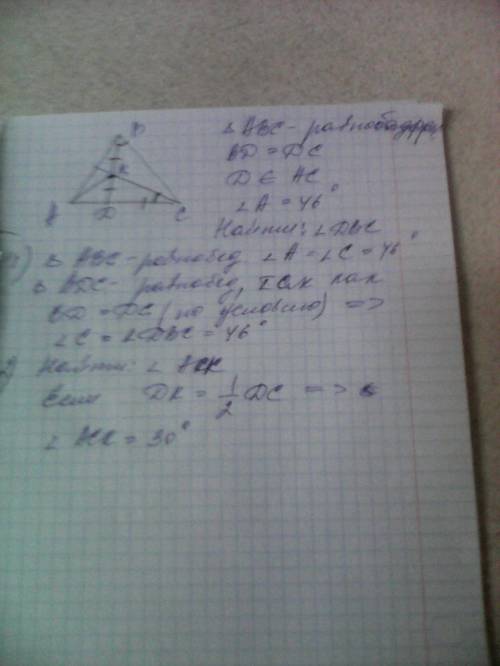 B
K
A D C
△ ABC - равнобедрен
BD = DC
D ∈ AC
∠A = 46°
Найти: ∠DBC
△ ABC - равнобед, ∠A = ∠C = 46°
△ BDC - равнобед, так как
BD = DC (по условию) =>
∠C = ∠DBC = 46°
2) Найти: ∠ ACK
Если DK = 1/2 DC =>
∠ ACK = 30°